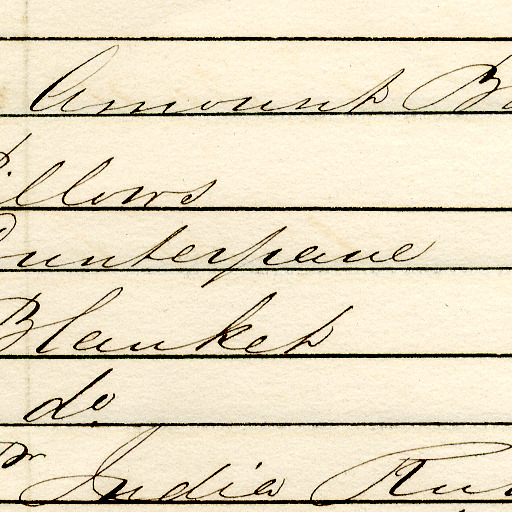 Amount B
Pillows
Counterpane
Blanket
do
Pr India Ru